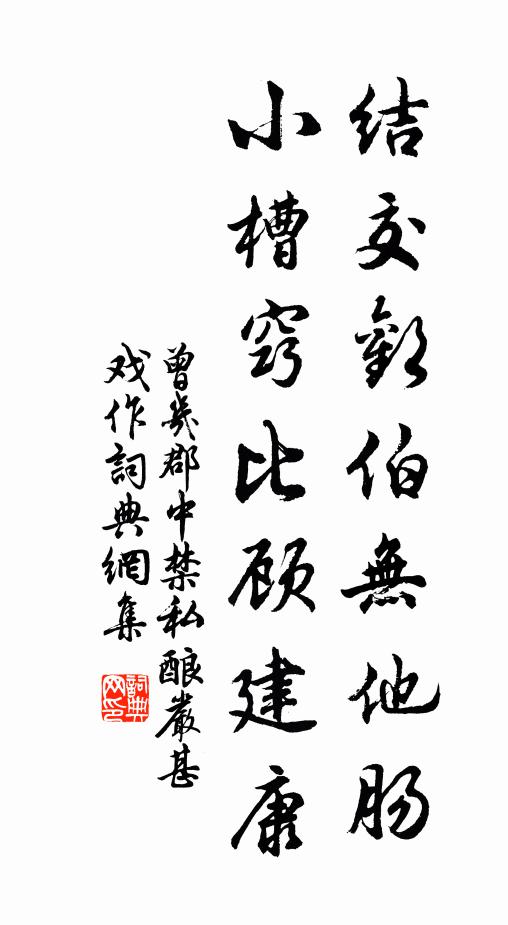 结交歡伯無他肠
小槽窃比顾建康
曾幾郡中禁私酿嚴甚
戏作詞典網集
詞典
网印